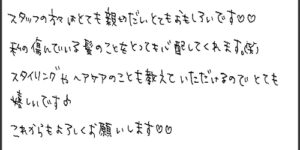 スタッフの方々はとても親切だし、とてもおもしろいです♡♡
私の傷んでいる髪のことをとっても心配してくれます。(笑)
スタイリングやヘアケアのことも教えていただけるのでとても
嬉しいです♪
これからもよろしくお願いします♡♡